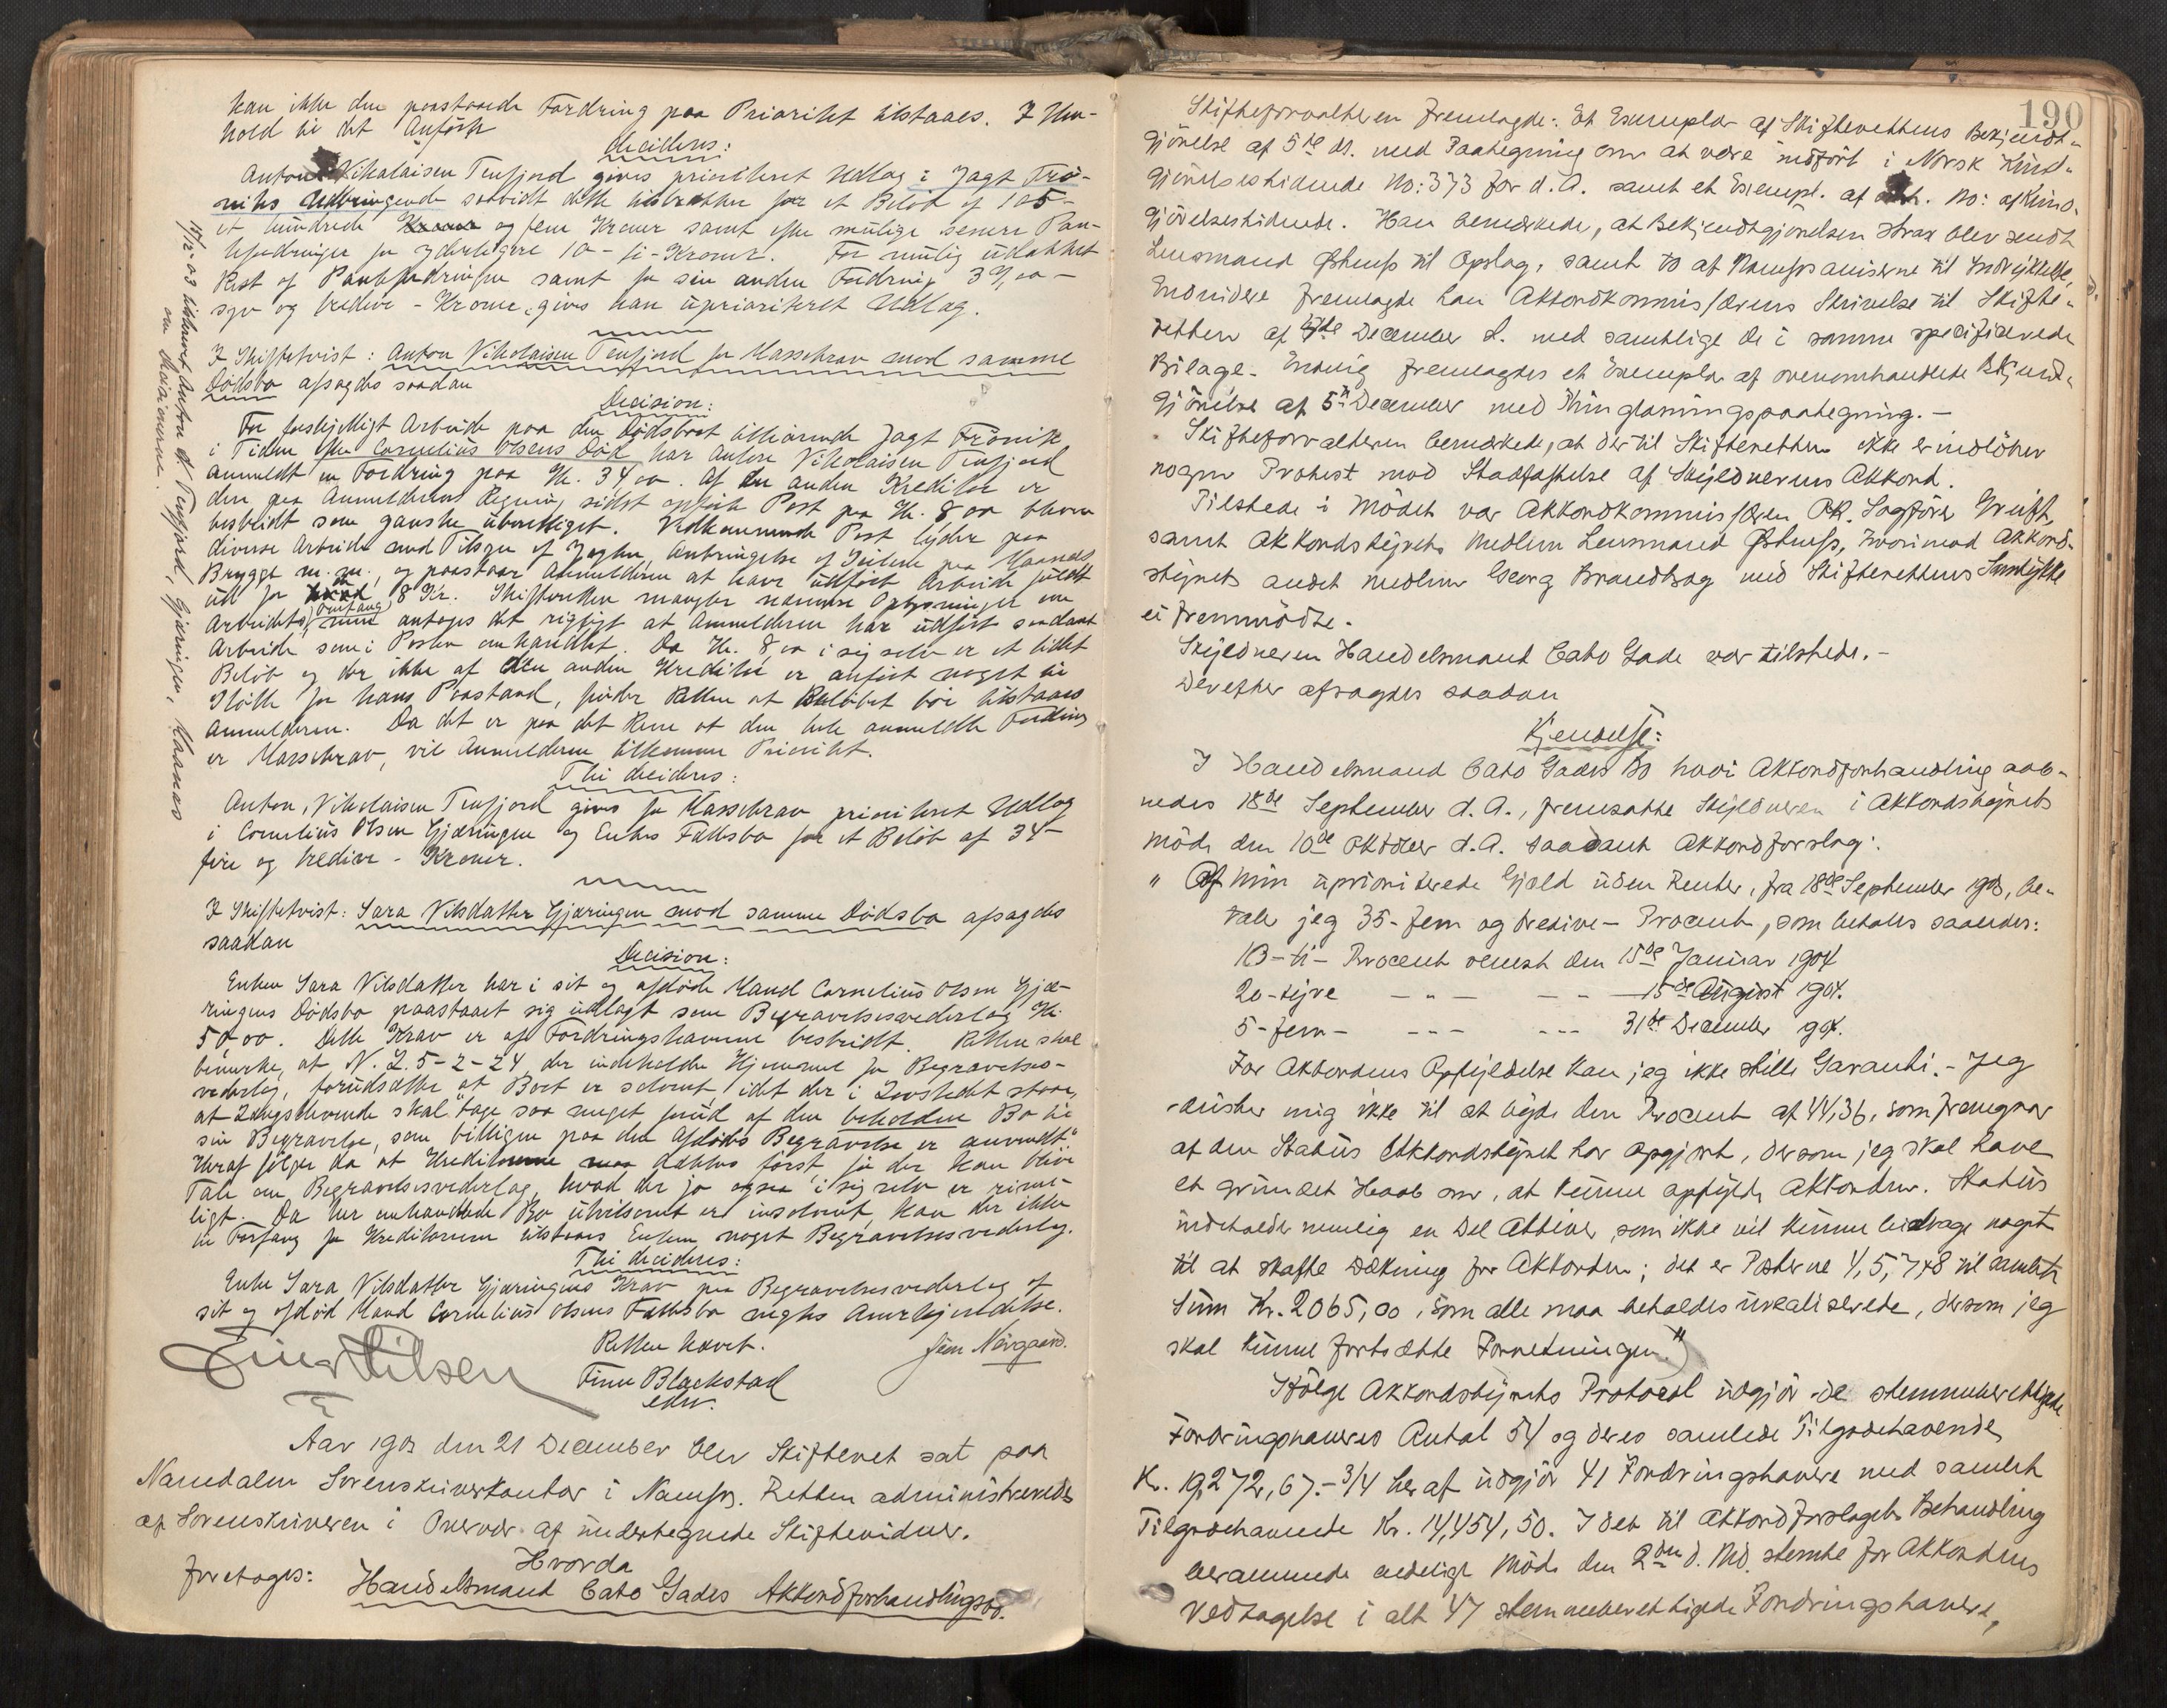 kan ikke den paastaaede Fordring paa Prioritet tilstaaes. I Hen-
hold til det Anførte
decideres:
Anton Nikolaisen Tenfjord gives prioriteret Udlag i Jagt Frø-
niks Udbringende saavidt dette tilstrækker for et Beløb af 105 -
et hundrede og fem Kroner samt efter mulige senere Pan-
tefordringer for yderligere 10 - ti - Kroner. For mulig udækket
Rest af Pantefordringen samt for sin anden Fordring 39,00 -
syv og tredive - Kroner, gives han uprioriteret Udlag.
I Skiftetvist: Anton Nikolaisen Tenfjord for Massekrav mod samme
Dødsbo afsagdes saadan
Decision:
For forskjelligt Arbeide paa den Dødsboet tilhørende Jagt Frønik
i Tiden efter Cornelius Olsens Død har Anton Nikolaisen Tenfjord
anmeldt en Fordring paa Kr. 34,00. Af den anden Kreditor er
den paa Anmelderens Regning sidst opførte Post paa Kr. 8,00 bleven
bestridt som ganske ubevitliget. Vedkommende Post lyder paa
diverse Arbeide med Tilsyn af Jagten, Anbringelse af paa Maanæs
Brygge m. m., og paastaar Anmelderen at have udført Arbeide fuldt
ud for 8 Kr. Skifteretten mangler nærmere Oplysninger om
Arbeidets Omfang, men antages det rigtigt at Anmelderen har udført saadant
Arbeide som i Posten omhandlet. Da Kr. 8,00 i sig selv er et lidet
Beløb og der ikke af den anden Kreditor er anført noget til
Støtte for hans Paastand, finder Retten at Beløbet bør tilstaaes
Anmelderen. Da det er paa det Rene at den hele anmeldte Fordring
er Massekrav, vil Anmelderen tilkomme Prioritet.
Thi decideres:
Anton Nikolaisen Tenfjord gives for Massekrav prioriteret Udlag
i Cornelius Olsen Gjæringen og Enkes Fællesbo for et Beløb af 34 -
fire og tredive - Kroner.
I Skiftetvist: Sara Nilsdatter Gjæringen mod samme Dødsbo afsagdes
saadan
Decision:
Enken Sara Nilsdatter har i sit og afdøde Mand Cornelius Olsen Gjæ-
ringens Dødsbo paastaaet sig udlagt som Begravelsesvederlag Kr.
50,00. Dette Krav er af Fordringshaverne bestridt. Retten skal
bemærke, at N. L. 5-2-24 der indeholder Hjemmel for Begravelses-
vederlag, forudsætter at Boet er solvent, idet der i Lovstedet staar,
at Længstlevende skal "tage saa meget forud af den beholdne Bo til
sin Begravelse, som billigen paa den Afdødes Begravelse er anvendt".
Heraf følger da at Kreditorerne maa dækkes først før der kan blive
Tale om Begravelsesvederlag, hvad der jo ogsaa i sig selv er rime-
ligt. Da her omhandlede Bo utvilsomt er insolvent, kan der ikke
til Forfang for Kreditorerne tilstaaes Enken noget Begravelsesvederlag.
Thi decideres:
Enke Sara Nilsdatter Gjæringens Krav paa Begravelsesvederlag af
sit og afdød Mand Cornelius Olsens Fællesbo negtes Anerkjendelse.
Retten hævet.
Finn Blackstad
edv.
Jem Nergaard.
18/12-03 tilskrevet Anton N. Tenfjord, Gjæringen, Maanæs
om decisionerne.
Aar 1903 den 21 December blev Skifteret sat paa
Namdalen Sorenskriverkontor i Namsos. Retten administreredes
af Sorenskriveren i Overvær af undertegnede Skiftevidner.
Hvorda
foretoges: Handelsmand Cato Gades Akkordforhandlingsbo.
190
Skifteforvalteren fremlagde: Et Exemplar af Skifterettens Bekjendt-
gjørelse af 5te ds. med Paategning om at være indført i Norsk Kund-
gjørelsestidende No: 373 for d. A. samt et Exempl. af No: af Kund-
gjørelsestidende. Han bemærkede, at Bekjendtgjørelsen strax blev sendt
Lensmand Østnes til Opslag, samt to af Namsosaviserne til Indrykkelse,
Endvidere fremlagde han Akkordkommissærens Skrivelse til Skifte-
retten af December d. med samtlige de i samme specificerede
Bilage. Endvig fremlagdes et Exemplar af ovenomhandlede Bkjendt-
gjørelse af 5te December med Thinglæsningspaategning. -
Skifteforvalteren bemærkede, at der til Skifteretten ikke er indløben
nogen Protest mod Stadfæstelse af Skyldnerens Akkord.
Tilstede i Mødet var Akkordkommissæren OR. Sagfører Greift,
samt Akkordstyrets Medlem Lensmand Østnes, hvorimod Akkord-
styrets andet Medlem Georg Brandtzæg med Skifterettens Samtykke
ei fremmødte.
Skyldneren Handelsmand Cato Gade var tilstede. -
Derefter afsagdes saadan
Kjendelse:
I Handelsmand Cato Gades Bo hvori Akkordforhandling aab-
nedes 18de September d. A., fremsatte Skyldneren i Akkordstyrets
Møde den 10de Oktober d. A. saadant Akkordforslag:
" Af min uprioriterede Gjæld uden Renter, fra 18de September 1903, be-
taler jeg 35 - fem og tredive - Procent, som betales saaledes:
10 - ti - Procent senest den 15de Januar 1904
20 - tyve - " - - - 15de August 1904.
5 - fem - - - - - - - 31te December 1904.
For Akkordens Opfyldelse kan jeg ikke stille Garanti. - Jeg
drister mig ikke til at byde den Procent af 44,36, som fremgaar
af den Status Akkordstyret har opgjort, dersom jeg skal have
et grundet Haab om, at kunne opfylde Akkorden. Status
indeholder nemlig en Del Aktiver, som ikke vil kunne bidrage noget
til at skaffe Dækning for Akkorden; det er Posterne 4, 5, 7 & 8 til samlet
Sum Kr. 2065,00, som alle maa beholdes urealiserede, dersom jeg
skal kunne fortsætte Forretningen."
Ifølge Akkordstyrets Protocol udgjør de stemmeberettigede
Fordringshaveres Antal 54 og deres samlede Tilgodehavende
Kr. 19,272,67. - 3/4 heraf udgjør 41 Fordringshavere med samlet
Tilgodehavende Kr. 14,454,50. I det til Akkordforslagets Behandling
berammede endelige Møde den 2den d. Md. stemte for Akkordens
Vedtagelse i alt 47 stemmeberettigede Fordringshavere,